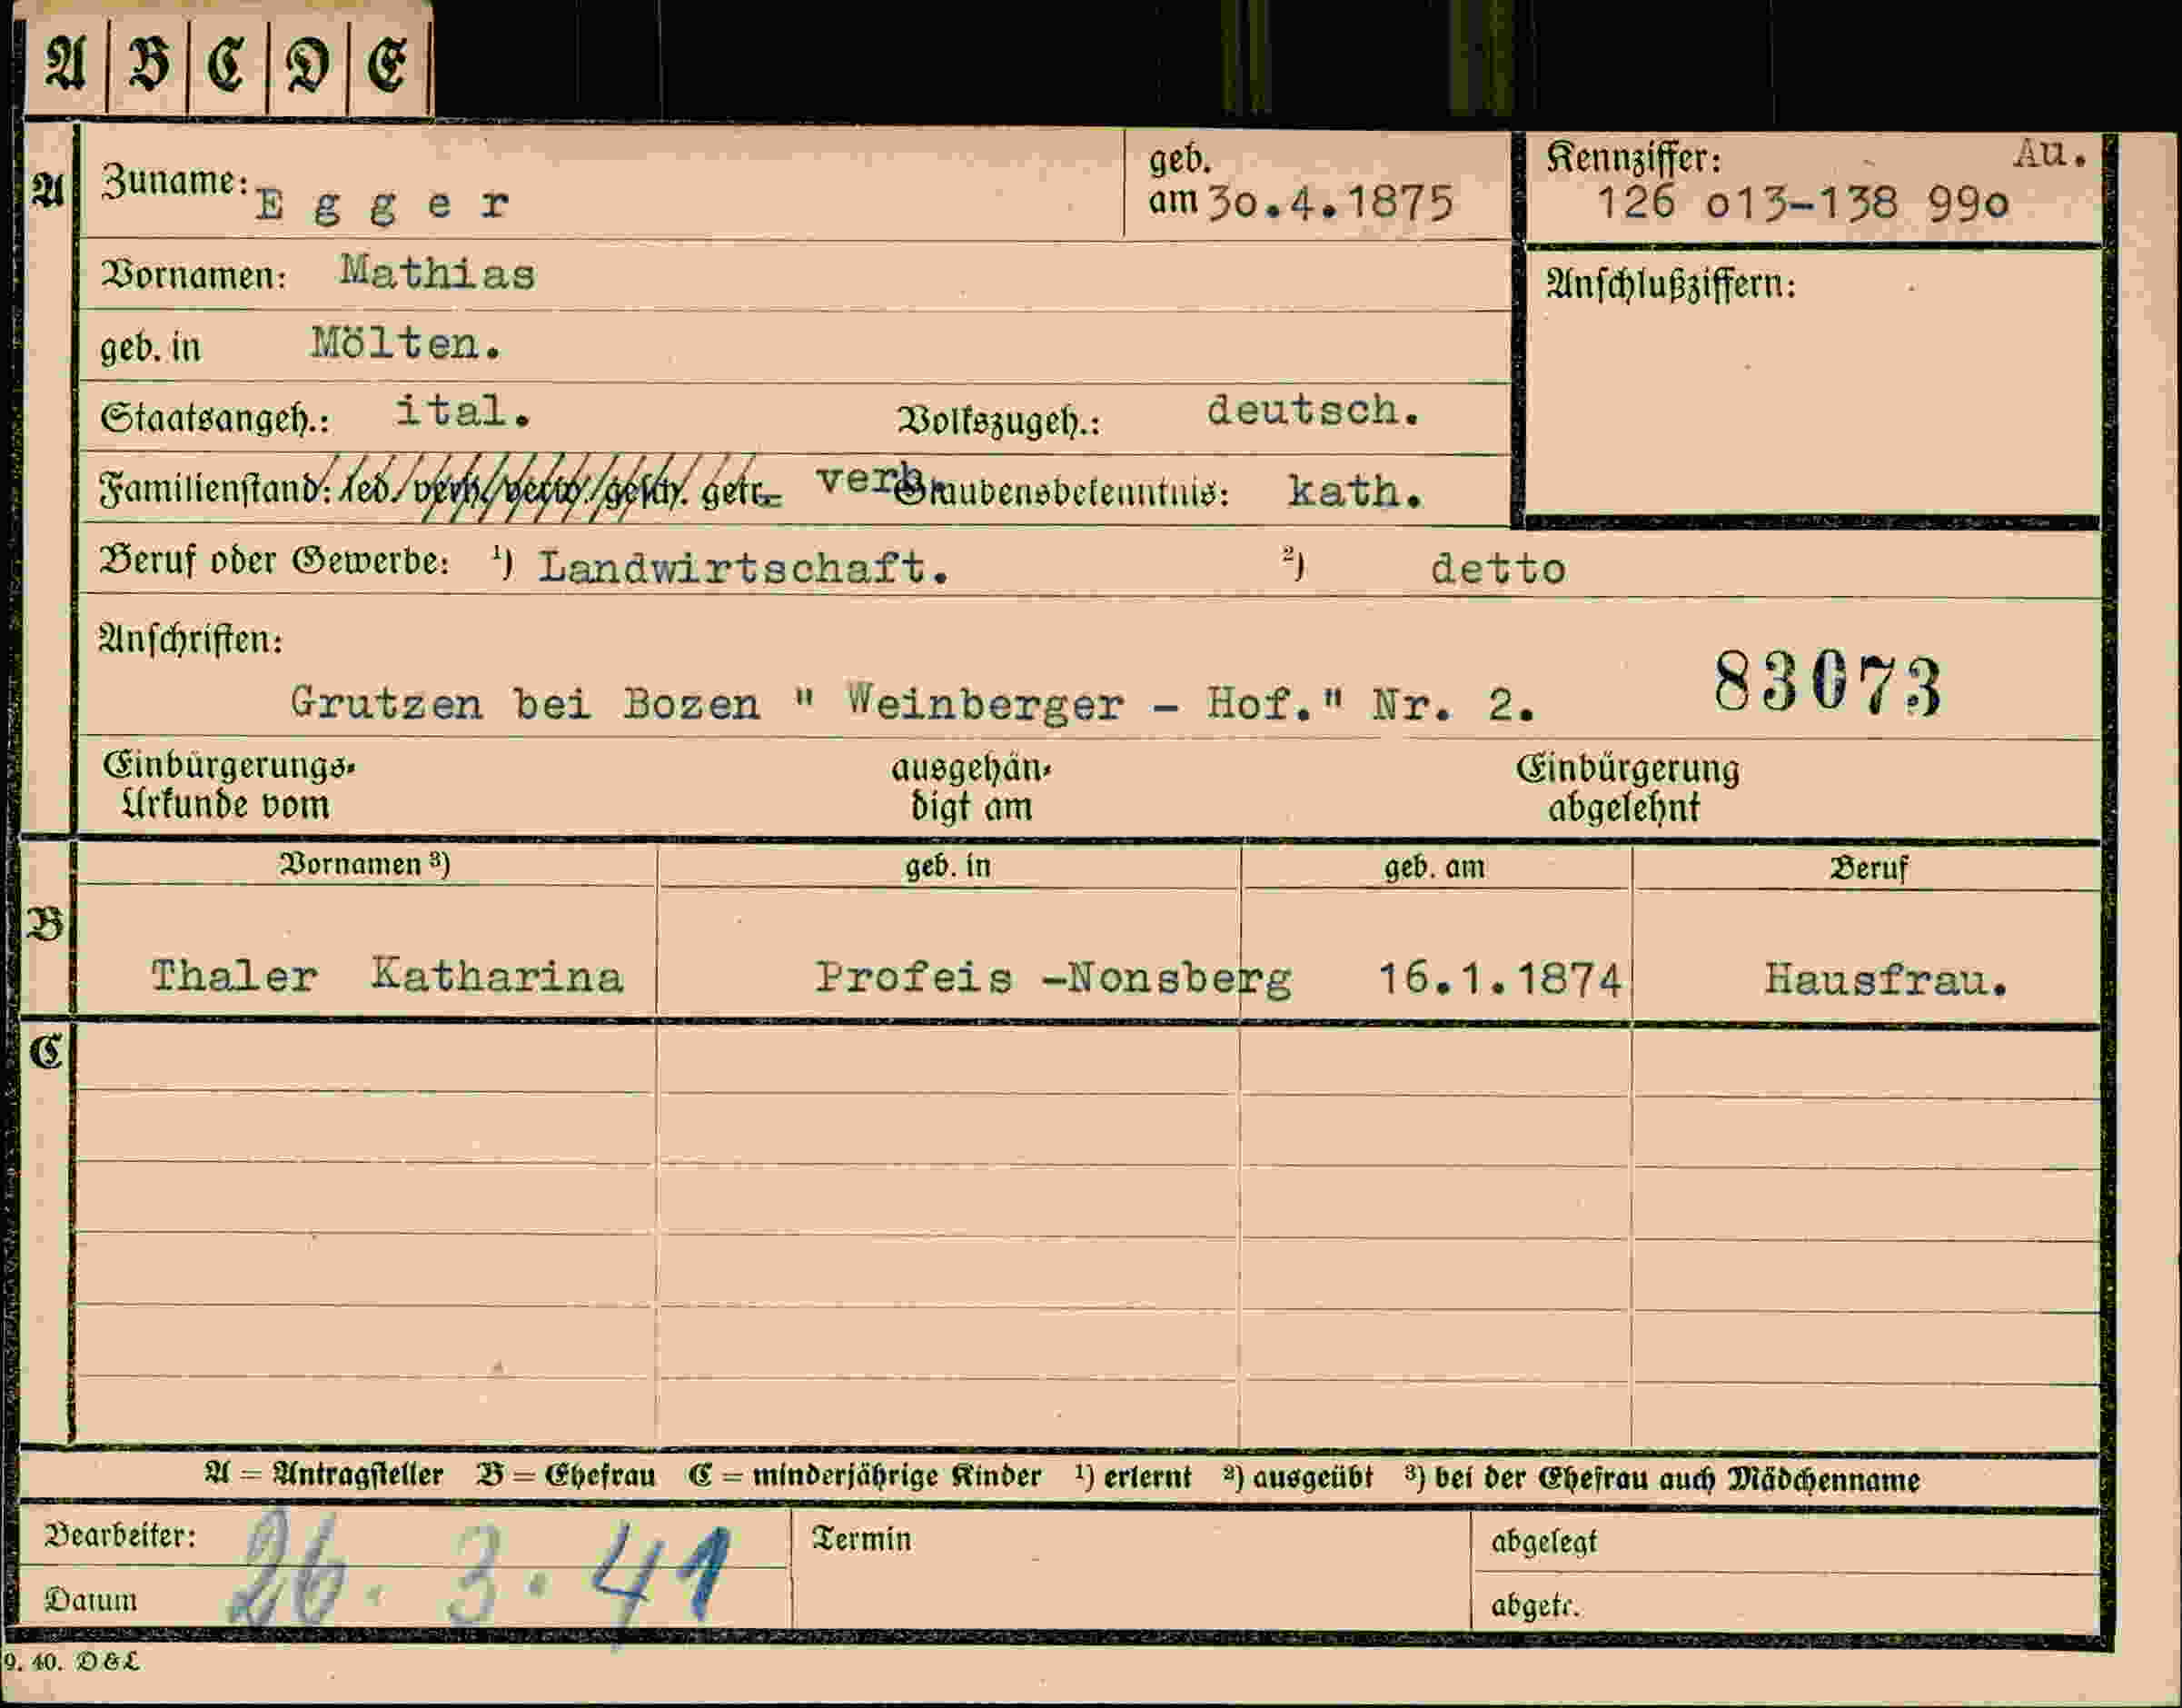 A B C D E
A Zuname: Egger geb. am 30.4.1875 Kennziffer: Au. 126 013-138 990
Vornamen: Mathias Anschlußziffern:
geb. in Mölten.
Staatsangeh.: ital. Volkszugeh.: deutsch.
Familienstand: led./verh./verw./gesch. getr. verh. Glaubensbekenntnis: kath.
Beruf oder Gewerbe: ¹) Landwirtschaft. ²) detto
Anschriften:
Grutzen bei Bozen " Weinberger - Hof." Nr. 2. 83073
Einbürgerungs- ausgehän- Einbürgerung
Urkunde vom digt am abgelehnt
B Vornamen ³) geb. in geb. am Beruf
Thaler Katharina Profeis -Nonsberg 16.1.1874 Hausfrau.
C
A = Antragsteller B = Ehefrau C = minderjährige Kinder ¹) erlernt ²) ausgeübt ³) bei der Ehefrau auch Mädchenname
Bearbeiter: Termin abgelegt
Datum 26. 3. 41 abgetr.
9. 40. D & L